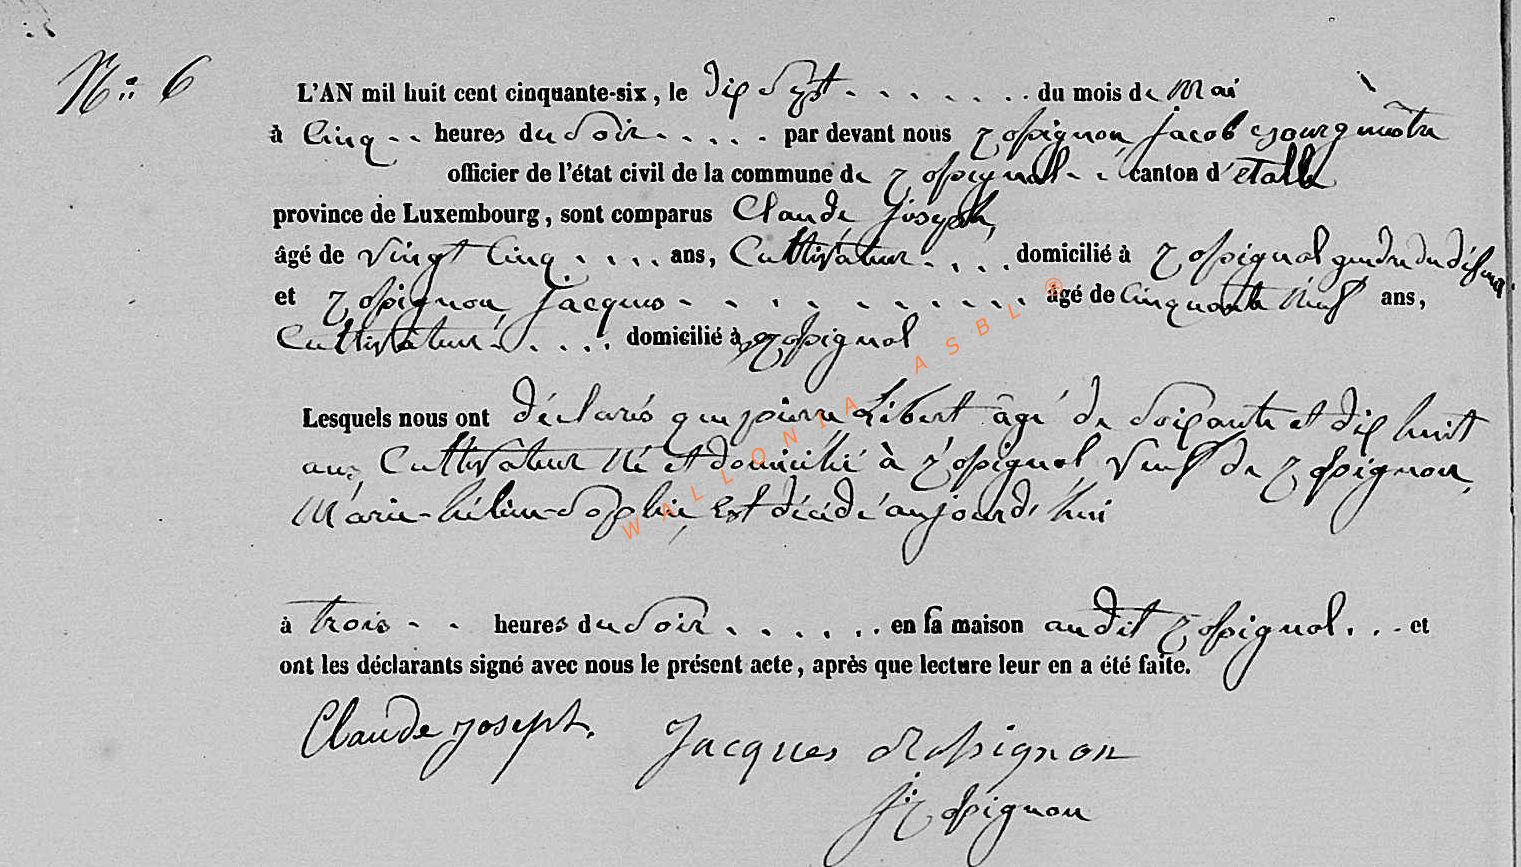 N.° 6
L'AN mil huit cent cinquante-six, le dix Sept . . . . . . . . du mois de Mai
à Cinq - - heures du Soir . . . . . par devant nous Rossignon, Jacob Bourgmestre
officier de l'état civil de la commune de Rossignol - - canton d'Etalle
province de Luxembourg, sont comparus Claude Joseph,
âgé de vingt Cinq . . . . ans, Cultivateur . . . . domicilié à Rossignol gendre du défunt.
et Rossignon, Jacques - . . . . . . . . . âgé de Cinquante Neuf ans,
Cultivateur . . . . . domicilié à Rossignol
Lesquels nous ont déclarés que pierre Libert âgé de Soixante et dix huit
ans, Cultivateur Né et domicilié à Rossignol, Veuf de Rossignon,
Marie-hélène-Sophie, Est décédé aujourd'hui
à trois - - heures du Soir . . . . . . en sa maison audit Rossignol . . . et
ont les déclarants signé avec nous le présent acte, après que lecture leur en a été faite.
Claude Joseph. Jacques Rossignon
J. Rossignon
WALLONIA ASBL ®